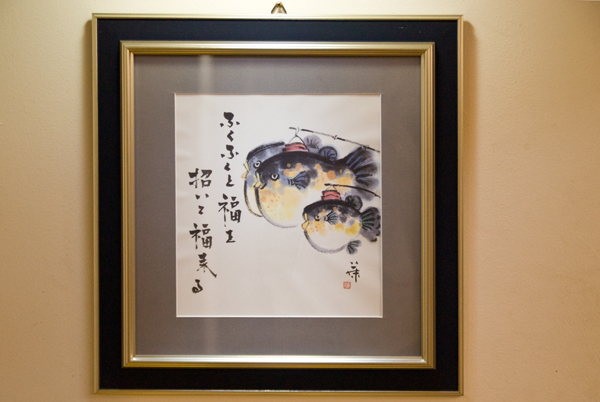 ふくふくと福を
招いて福来る